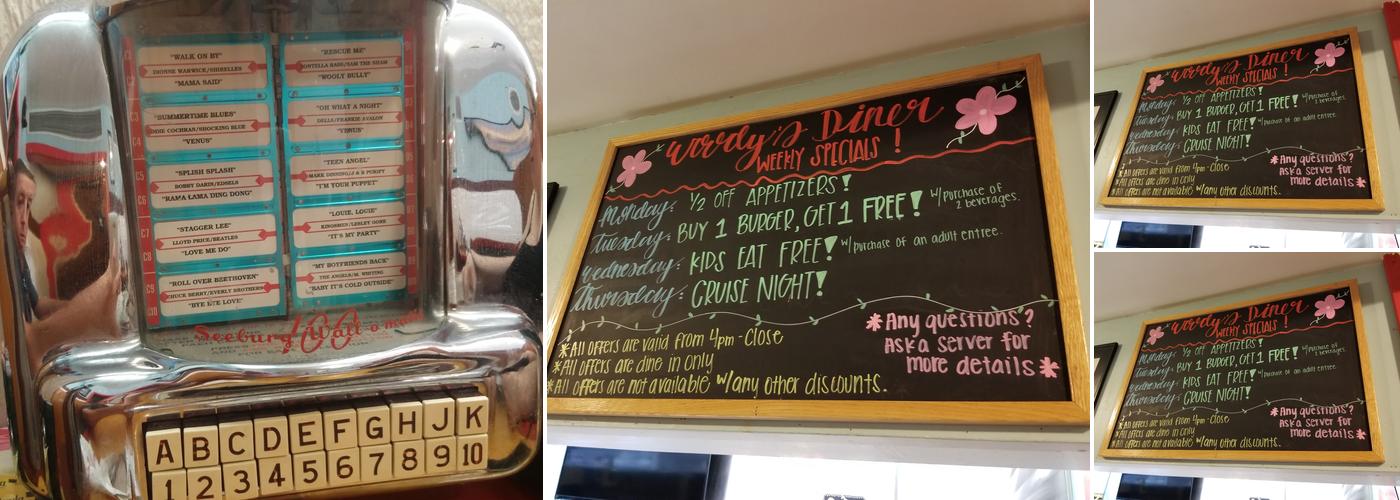 "WALK ON BY"
DIONNE WARWICK/SHIRELLES
"MAMA SAID"
"SUMMERTIME BLUES"
EDDIE COCHRAN/SHOCKING BLUE
"VENUS"
"SPLISH SPLASH"
BOBBY DARIN/EDSELS
"RAMA LAMA DING DONG"
"STAGGER LEE"
LLOYD PRICE/BEATLES
"LOVE ME DO"
"ROLL OVER BEETHOVEN"
CHUCK BERRY/EVERLY BROTHERS
"BYE BYE LOVE"
"RESCUE ME"
FONTELLA BASS/SAM THE SHAM
"WOOLY BULLY"
"OH WHAT A NIGHT"
DELLS/FRANKIE AVALON
"VENUS"
"TEEN ANGEL"
MARK DINNING/J & B PURIFY
"I'M YOUR PUPPET"
"LOUIE, LOUIE"
KINGSMEN/LESLEY GORE
"IT'S MY PARTY"
"MY BOYFRIENDS BACK"
THE ANGELS/M. WHITING
"BABY IT'S COLD OUTSIDE"
C5
C6
C7
C8
C9
Seeburg Wall-o-matic
100
A B C D E F G H J K
1 2 3 4 5 6 7 8 9 10
Woody's Diner
WEEKLY SPECIALS!
Monday: 1/2 OFF APPETIZERS!
Tuesday: BUY 1 BURGER, GET 1 FREE! w/Purchase of 2 beverages.
Wednesday: KIDS EAT FREE! w/purchase of an adult entree.
Thursday: CRUISE NIGHT!
*All offers are valid from 4pm-Close
*All offers are dine in only
*All offers are not available w/any other discounts.
*Any questions?
Ask a server for
more details*
Woody's Diner
WEEKLY SPECIALS!
Monday: 1/2 OFF APPETIZERS!
Tuesday: BUY 1 BURGER, GET 1 FREE! w/Purchase of 2 beverages.
Wednesday: KIDS EAT FREE! w/purchase of an adult entree.
Thursday: CRUISE NIGHT!
*All offers are valid from 4pm-Close
*All offers are dine in only
*All offers are not available w/any other discounts.
*Any questions?
Ask a server for
more details*
Woody's Diner
WEEKLY SPECIALS!
Monday: 1/2 OFF APPETIZERS!
Tuesday: BUY 1 BURGER, GET 1 FREE! w/Purchase of 2 beverages.
Wednesday: KIDS EAT FREE! w/purchase of an adult entree.
Thursday: CRUISE NIGHT!
*All offers are valid from 4pm-Close
*All offers are dine in only
*All offers are not available w/any other discounts.
*Any questions?
Ask a server for
more details*